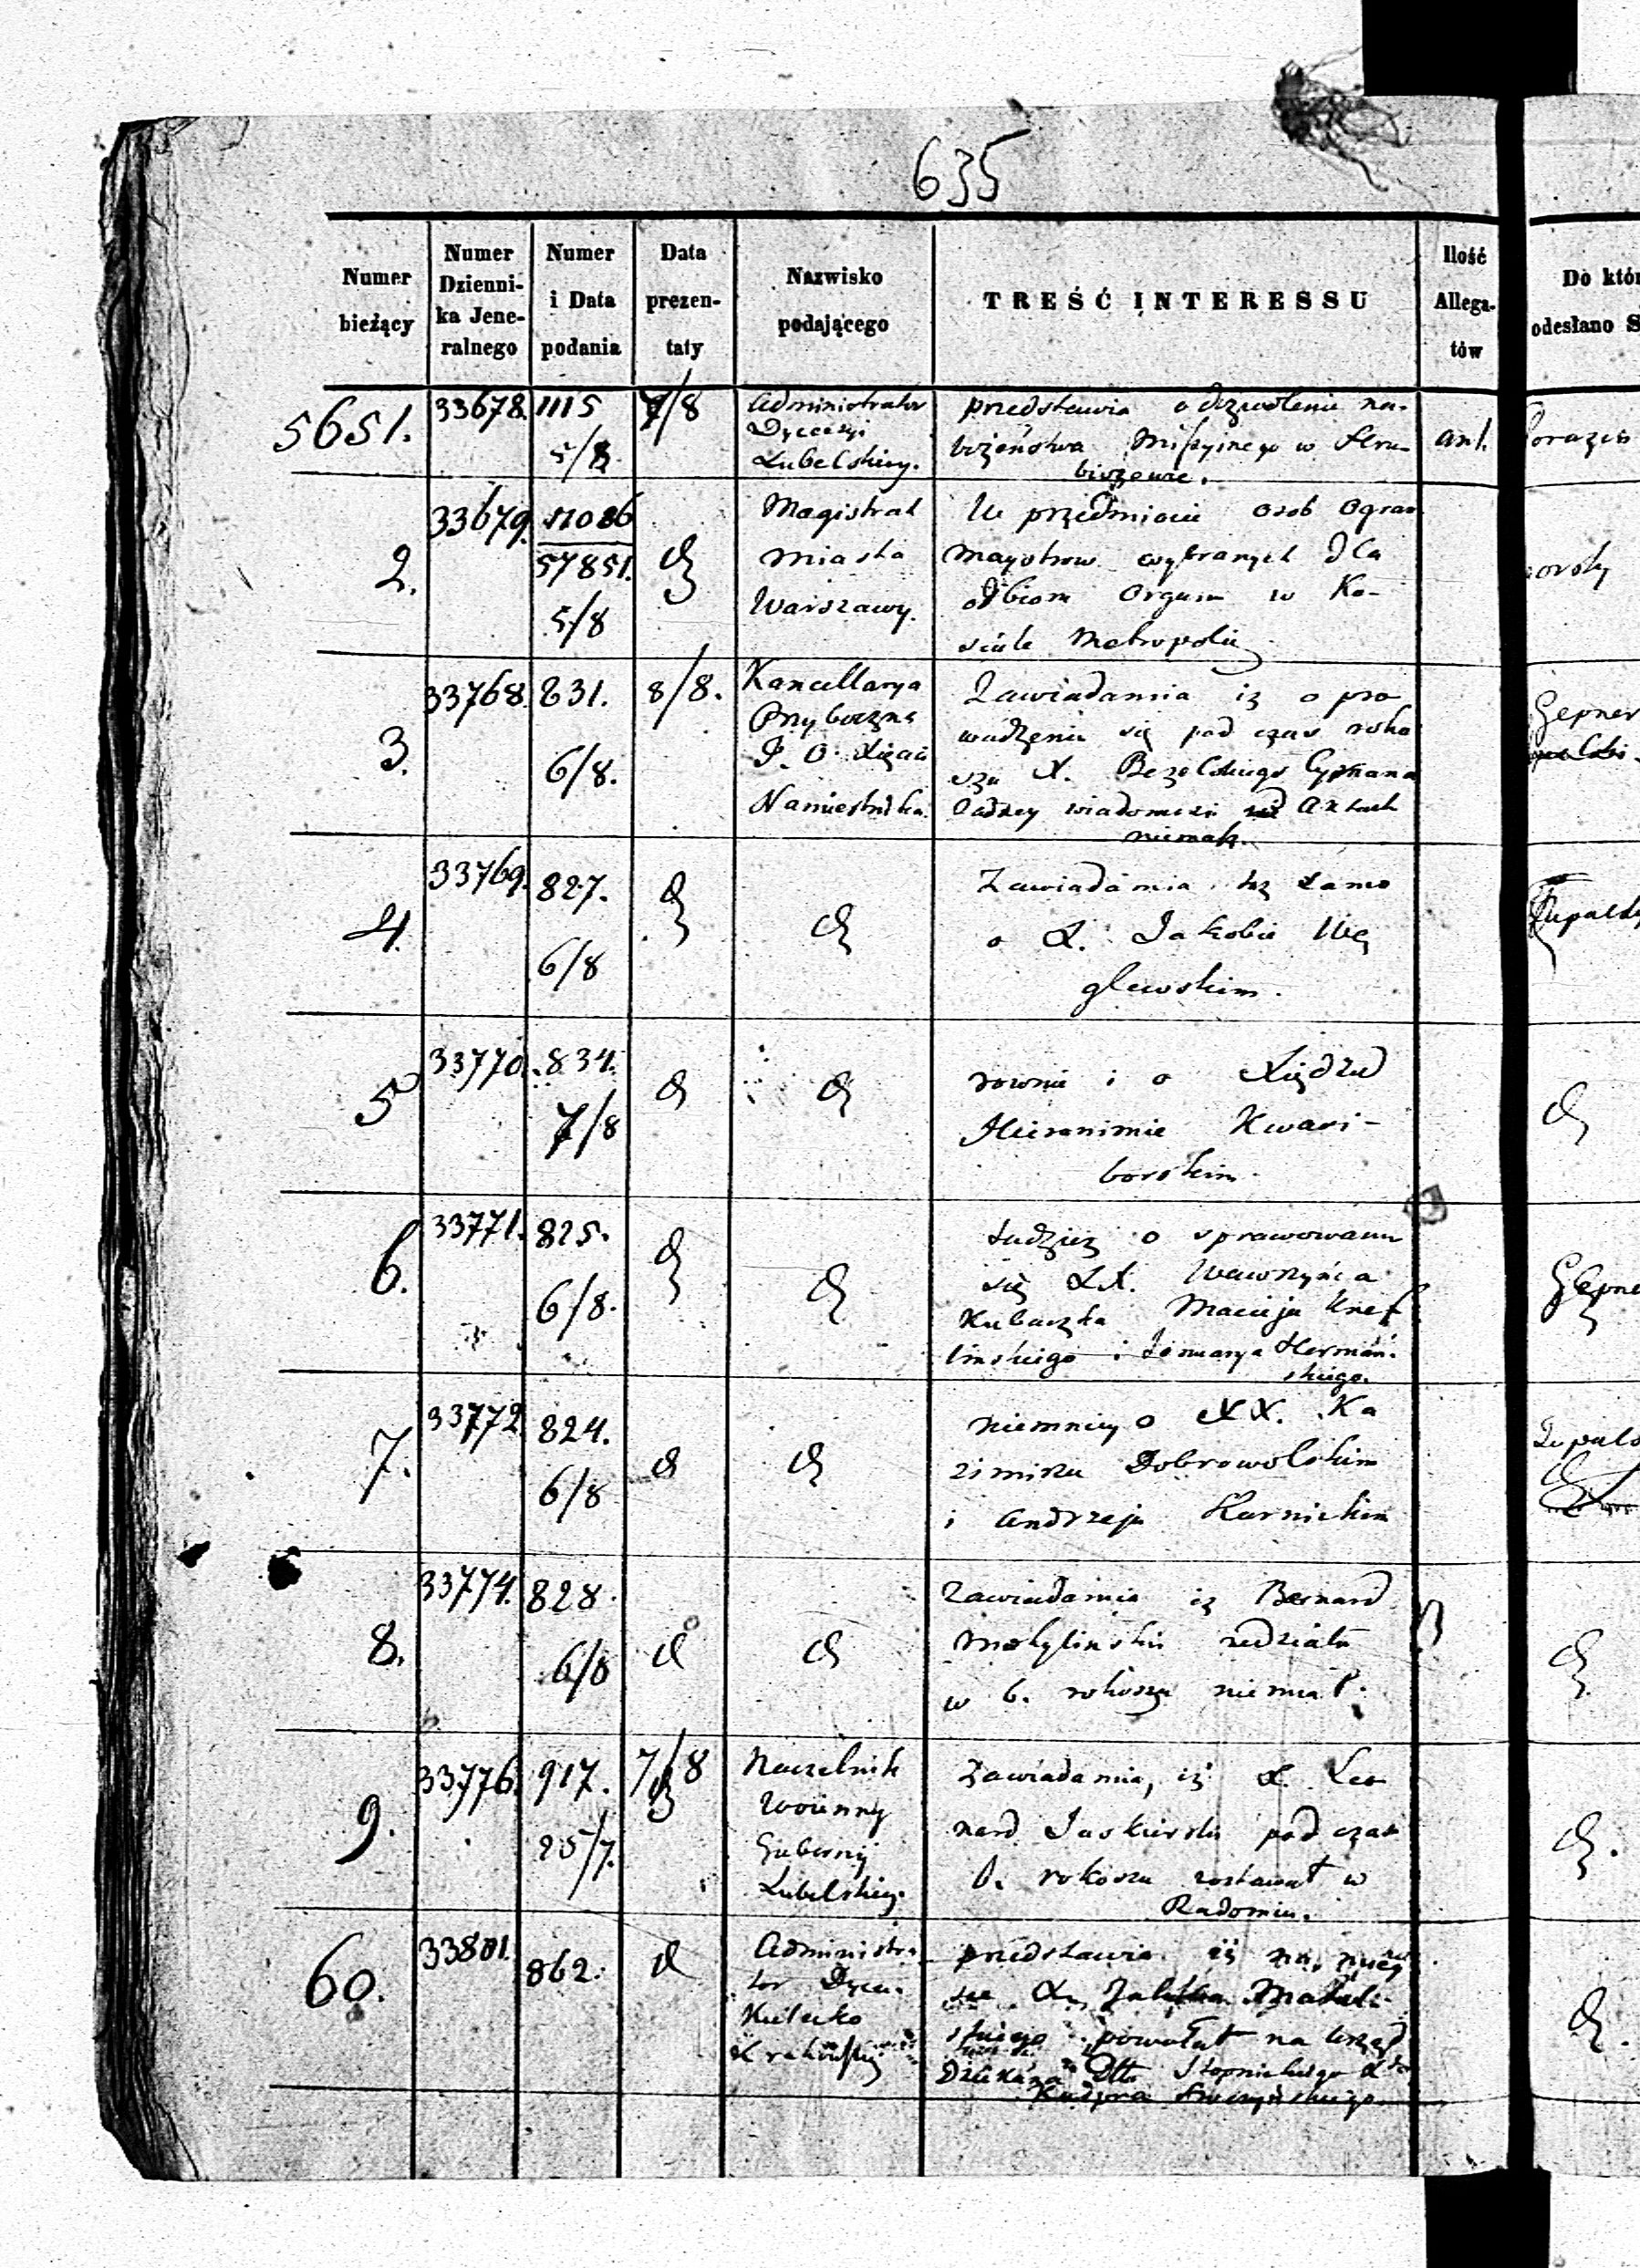 635
Numer bieżący
Numer Dzienni-ka Jene-ralnego
Numer i Data podania
Data prezen-taty
Nazwisko podającego
TREŚĆ INTERESSU
Ilość Allega-tów
Do któr
odesłano S
5651.
33678.
1115
5/8
7/8
Administrator
Dyecezyi
Lubelskiey.
przedstawia o dozwolenie na-
bożeństwa Missyinego w Hru-
bieszowie.
anl.
2.
33679.
57851.
5/8
Magistrat
Miasta
Warszawy.
W przedmiocie osob Organ
maystrow wybranych dla
odbioru Organu w Ko-
ściele Metropolit
3.
33768.
831.
6/8.
8/8.
Kancellarya
Przyboczna
J. O. Xięcia
Namiestnika.
Zawiadamia iż o pro
wadzeniu się pod czas roko
szu X. Bezelskiego Cypriana
żadney wiadomości w Aktach
niema.
Gepner
4.
33769.
827.
6/8
Zawiadamia toż samo
o X. Jakobie Wę
glewskim.
5
33770.
834.
7/8
rownie i o Xiędzu
Hieronimie Kwasi-
borskim.
6.
33771.
825.
6/8.
tudzież o sprawowaniu
się XX. Wawrzyńca
Kubaczka Macieja Knef
linskiego i Tomasza Hermań-
skiego.
Gepne
7.
33772.
824.
6/8
niemniey o XX. Ka
zimirzu Dobrowolskim
i Andrzeju Karnickim
8.
33774.
828.
6/8
Zawiadamia iż Bernard
Motyliński udziału
w b. rokoszu niemiał.
9.
33776.
917.
25/7.
7/8
Naczelnik
Woienny
Gubernij
Lubelskiey.
Zawiadamia, iż X. Leo
nard Jaskierski pod czas
b. rokoszu zostawał w
Radomiu.
60.
33801.
862.
Administra-
tor Dyec.
Kielecko
Krakowskiey
przedstawia iż na miey
sce X.
skiego powołał na Urząd
Dziekana Dttu Stopnickiego X